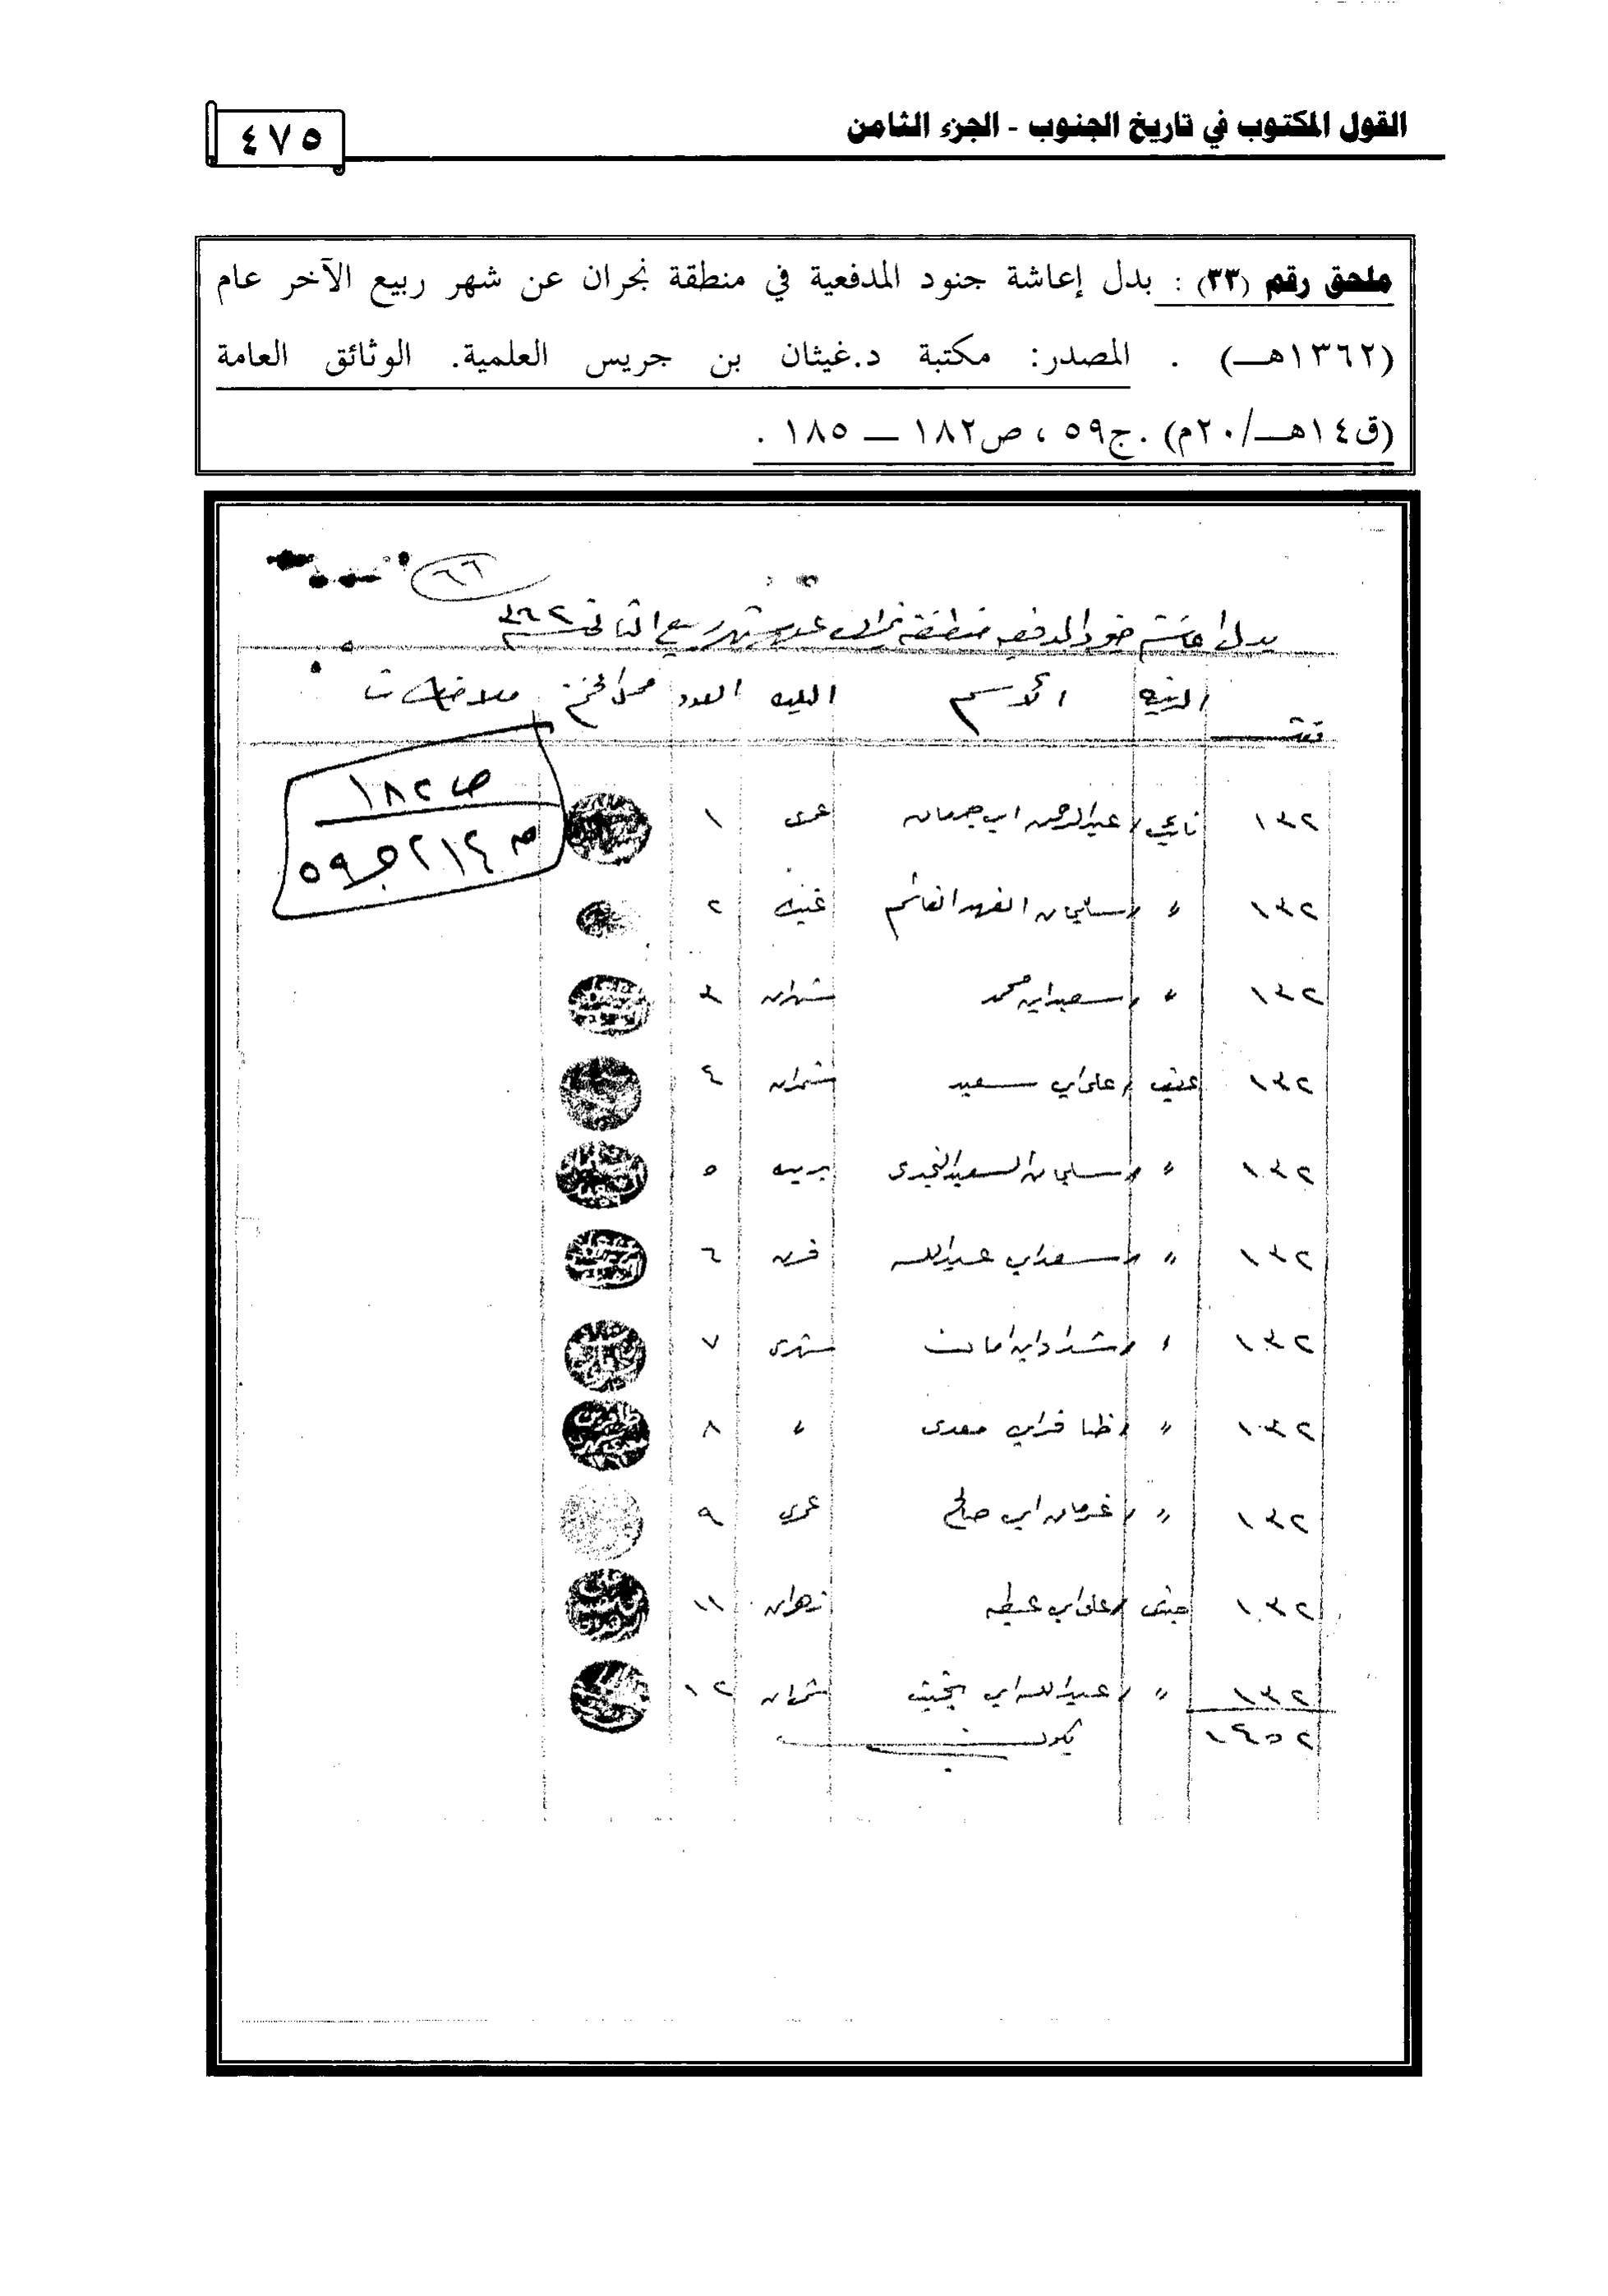 القول المكتوب في تاريخ الجنوب - الجزء الثامن
٤٧٥
ملحق رقم (٣٣) : بدل إعاشة جنود المدفعية في منطقة نجران عن شهر ربيع الآخر عام
(١٣٦٢هـ) . المصدر: مكتبة د.غيثان بن جريس العلمية. الوثائق العامة
(ق١٤هـ/٢٠م) .ج٥٩ ، ص١٨٢ – ١٨٥ .
٦٦
بدل اعاشة جنود المدفعيه منطقة نجران عن شهر ربيع الثاني ٣٦٢
الرتبه الاسم القبيله العدد محل الختم ملاحظات
ص ١٨٢
م ٢١٤ ج ٥٩
١٣٢ نائب / عبدالرحمن ابن جمعان عمرى ١
١٣٢ " / سليمان الفهد الغانم ٢
١٣٢ " / سعيد ابن محمد شهران ٣
١٣٢ / على ابن سعيد شمران ٤
١٣٢ " / سليمان السعيد ٥
١٣٢ " / سعد ابن عبدالله ٦
١٣٢ " / شداد ابن شهرى ٧
١٣٢ " / ظافر ابن معدى " ٨
١٣٢ " / غرمان ابن صالح عمرى ٩
١٣٢ جندى / على ابن عطيه زهران ١١
١٣٢ " / عبدالله ابن شمران ١٢
١٤٥٢ يكون